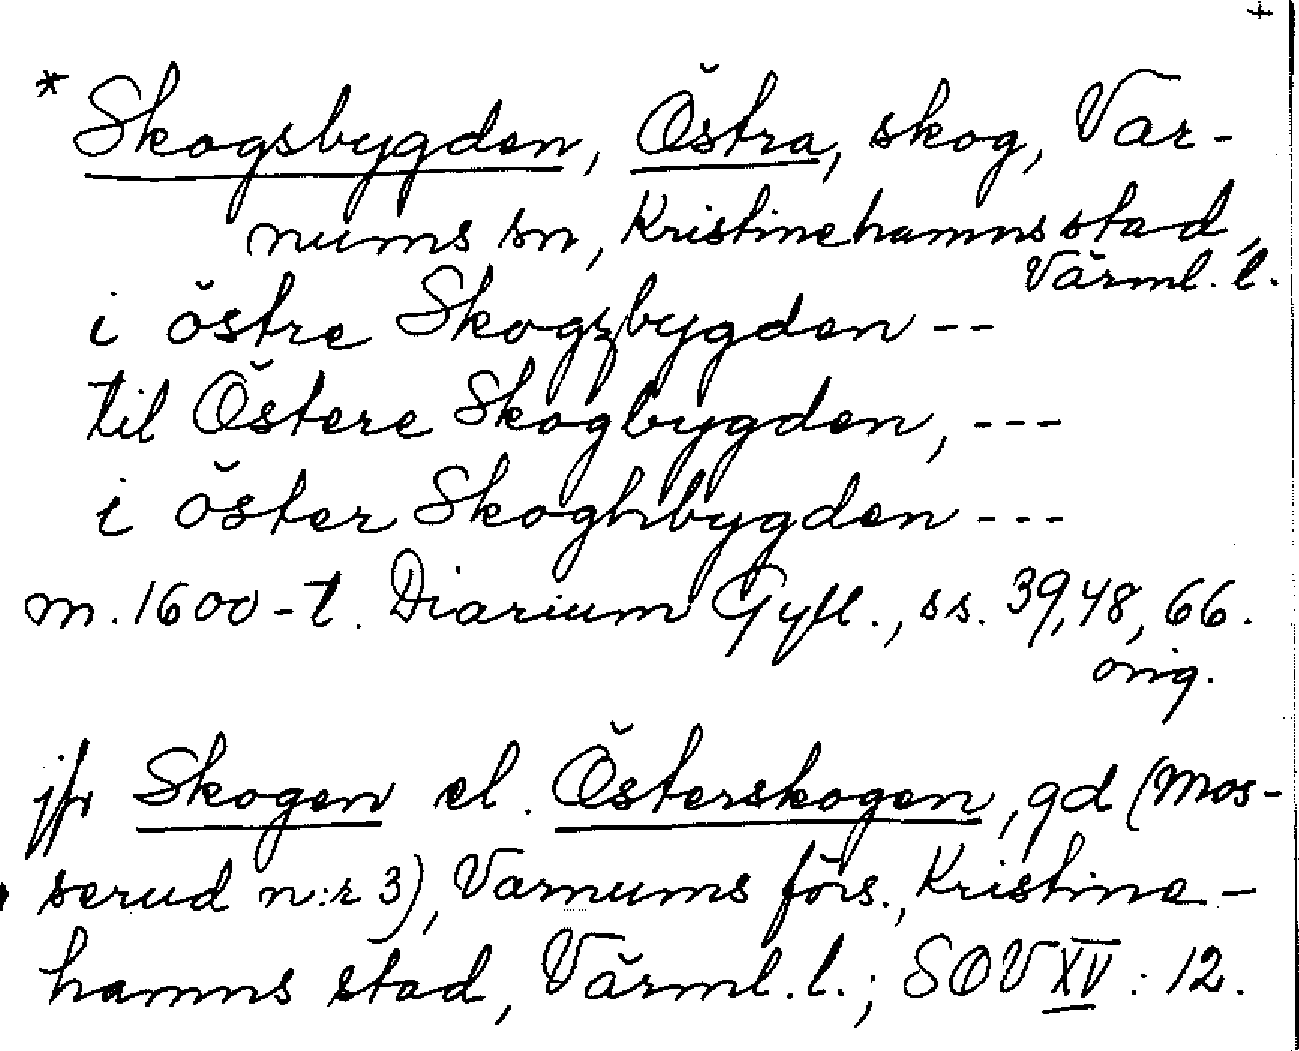 +
* Skogsbygden, Östra, skog, Var-
nums sn, Kristinehamns stad,
Värml. l.
i östre Skogzbygden --
til Östere Skogbygden, ---
i öster Skoghbygden ---
m. 1600-t. Diarium Gyll., ss. 39, 48, 66.
orig.
jfr Skogen el. Österskogen, gd (Mos-
serud n:r 3), Varnums förs., Kristine-
hamns stad, Värml. l.; SOV XV: 12.